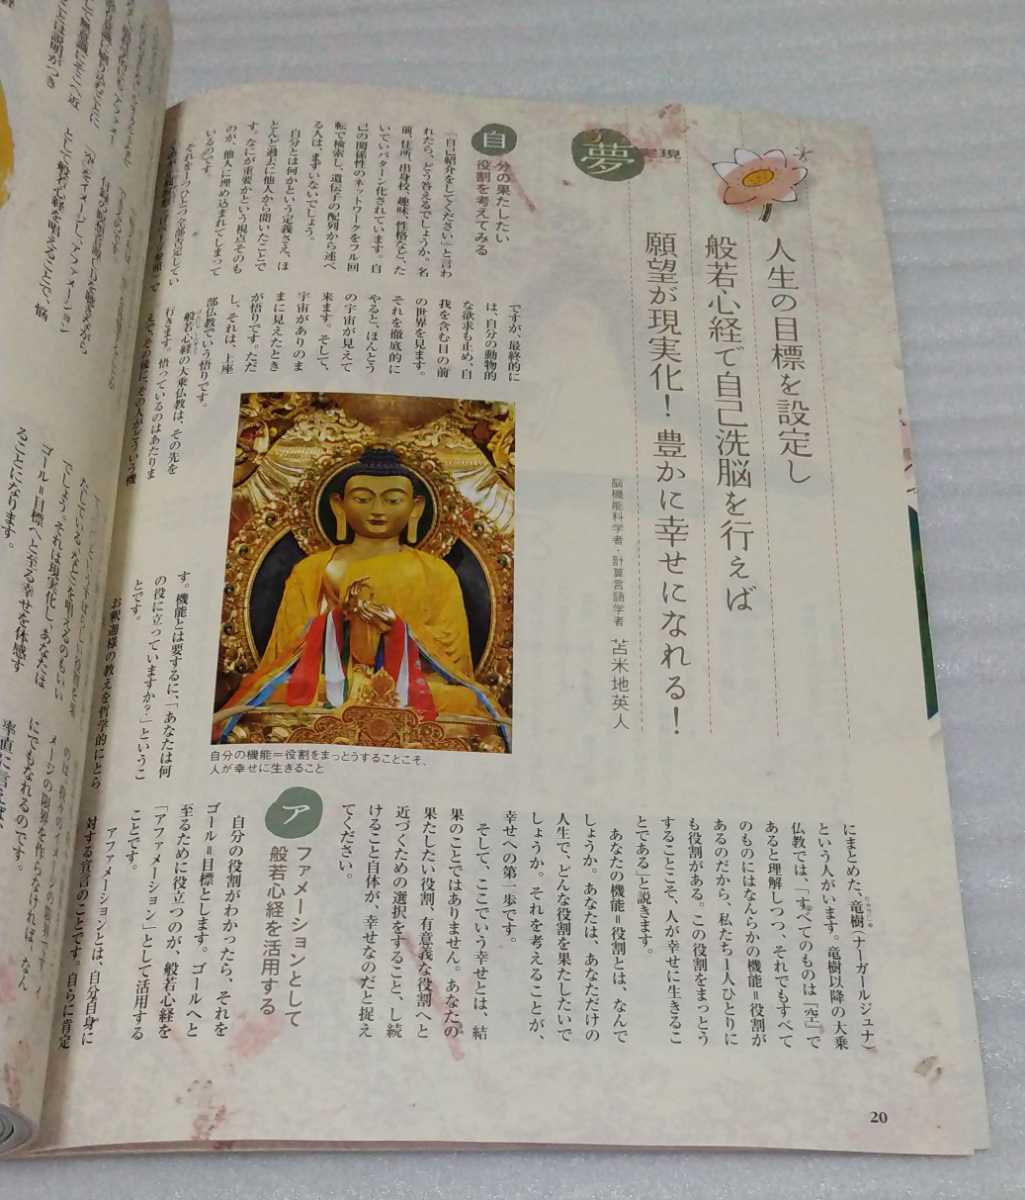 夢実現
人生の目標を設定し
般若心経で自己洗脳を行えば
願望が現実化！豊かに幸せになれる！
脳機能科学者・計算言語学者 苫米地英人
自分の果たしたい
役割を考えてみる
「自己紹介をしてください」と言わ
れたら、どう答えるでしょうか。名
前、住所、出身校、趣味、性格など、た
いていパターン化されています。自
己の関係性のネットワークをフル回
転で検索し、遺伝子の配列から述べ
る人は、まずいないでしょう。
自分とは何かという定義さえ、ほ
とんど過去に他人から聞いたことで
す。なにが重要かという視点そのも
のが、他人に埋め込まれてしまって
いるのです。
それを一つひとつ全部否定してい
ですが、最終的に
は、自分の動物的
な欲求も止め、自
我を含む目の前
の世界を見ます。
それを徹底的に
やると、ほんとう
の宇宙が見えて
来ます。そして、
宇宙がありのま
まに見えたとき
が悟りです。ただ
し、それは、上座
部仏教でいう悟りです。
般若心経の大乗仏教は、その先を
行きます。悟っているのはあたりま
えで、その後に、その人がどういう機
自分の機能＝役割をまっとうすることこそ、
人が幸せに生きること
す。機能とは要するに、「あなたは何
の役に立っていますか？」というこ
とです。
お釈迦様の教えを哲学的にとら
にまとめた、竜樹（ナーガールジュナ）
という人がいます。竜樹以降の大乗
仏教では、「すべてのものは『空』で
あると理解しつつ、それでもすべて
のものにはなんらかの機能＝役割が
あるのだから、私たち1人ひとりに
も役割がある。この役割をまっとう
することこそ、人が幸せに生きるこ
とである」と説きます。
あなたの機能＝役割とは、なんで
しょうか。あなたは、あなただけの
人生で、どんな役割を果たしたいで
しょうか。それを考えることが、
幸せへの第一歩です。
そして、ここでいう幸せとは、結
果のことではありません。あなたの
果たしたい役割、有意義な役割へと
近づくための選択をすること、し続
けること自体が、幸せなのだと捉え
てください。
アファメーションとして
般若心経を活用する
自分の役割がわかったら、それを
ゴール＝目標とします。ゴールへと
至るために役立つのが、般若心経を
「アファメーション」として活用する
ことです。
アファメーションとは、自分自身に
対する宣言のことです。自らに肯定
20
ゴール＝目標へと至る幸せを体感す
ることになります。
でしょう。それは現実化し、あなたは
メージの限界を作らなければ、なん
にでもなれるのです。
率直に言えば、